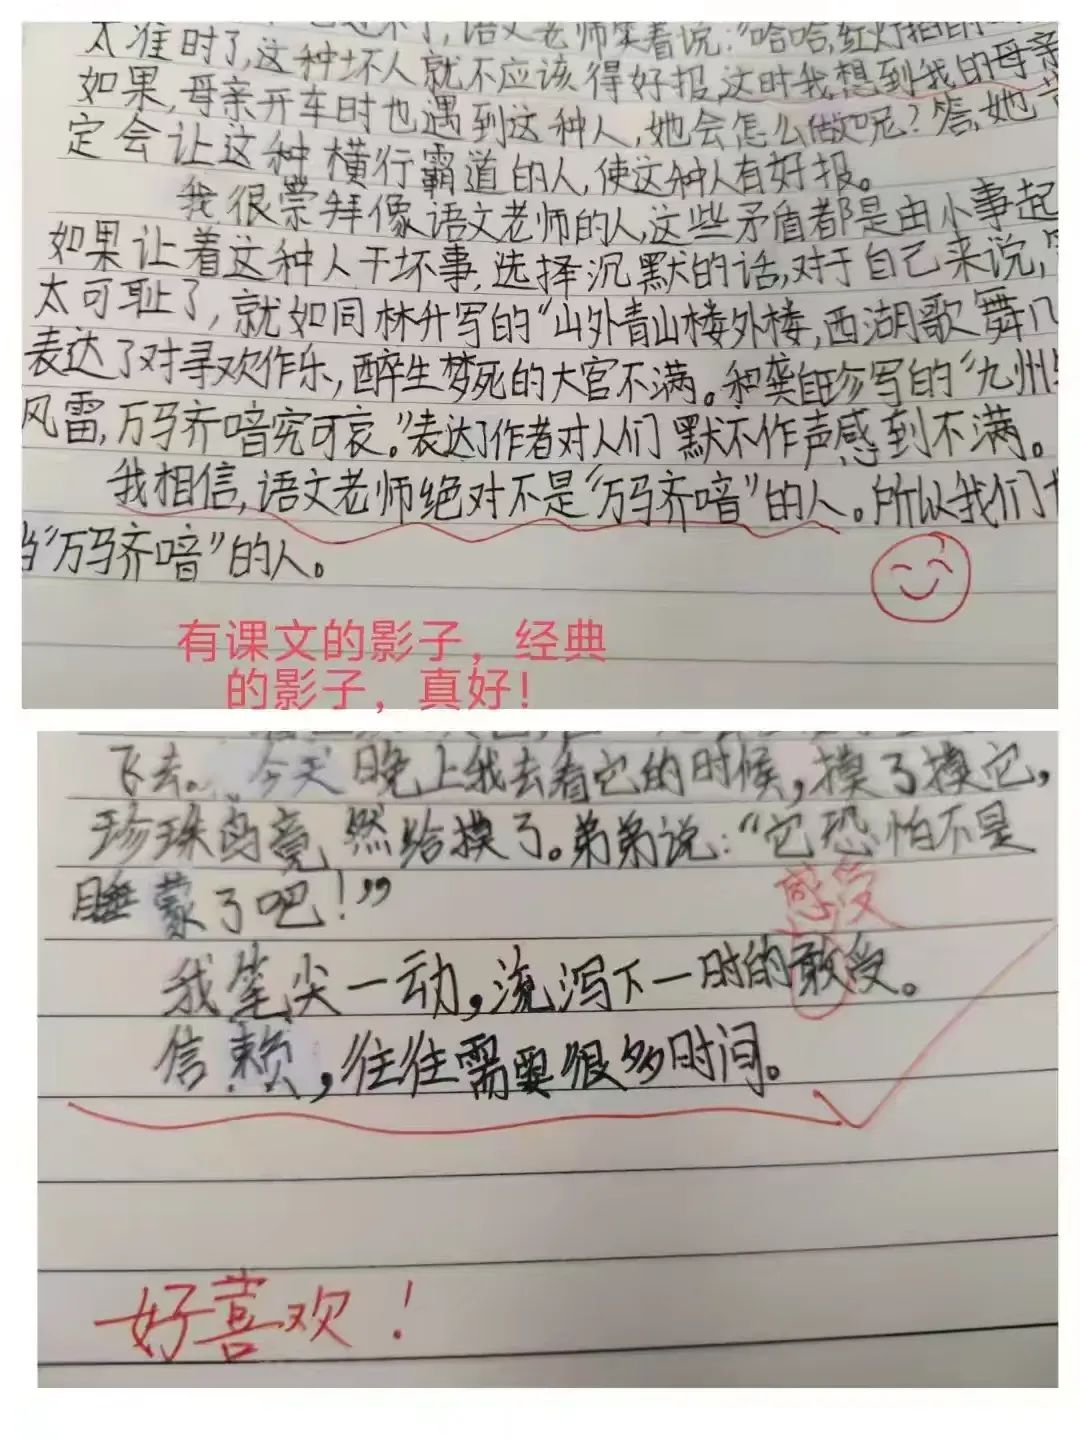 语文老师笑着说：“哈哈，红灯拍的
太准时了，这种坏人就不应该得好报，这时我想到我的母亲
如果，母亲开车时也遇到这种人，她会怎么做呢？答，她
定会让这种横行霸道的人，使这种人有好报。
我很崇拜像语文老师的人，这些矛盾都是由小事起
如果让着这种人干坏事，选择沉默的话，对于自己来说，
太可耻了，就如同林升写的“山外青山楼外楼，西湖歌舞几
表达了对寻欢作乐，醉生梦死的大官不满。和龚自珍写的“九州
风雷，万马齐喑究可哀。”表达了作者对人们默不作声感到不满。
我相信，语文老师绝对不是“万马齐喑”的人。所以我们
当“万马齐喑”的人。
有课文的影子，经典
的影子，真好！
飞去。今天晚上我去看它的时候，摸了摸它，
珍珠鸟竟然给摸了。弟弟说：“它恐怕不是
睡蒙了吧！”
感受
我笔尖一动，流泻下一时的敢受。
信赖，往往需要很多时间。
好喜欢！